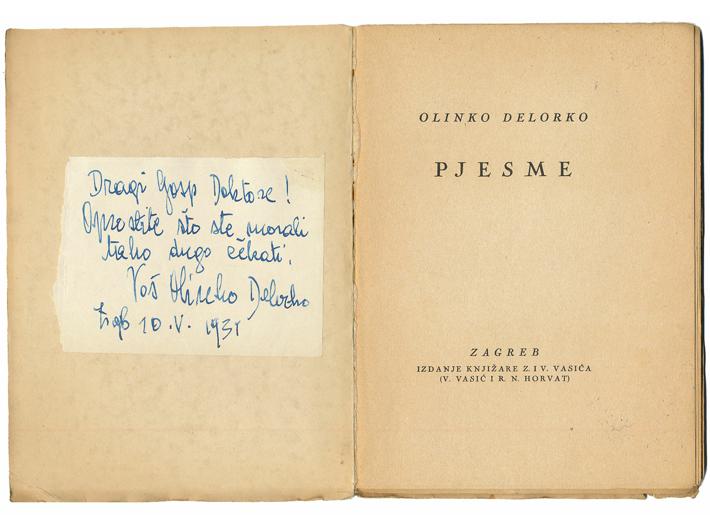 Dragi Gosp Doktore!
Oprostite što ste morali
tako dugo čekati.
Vaš Olinko Delorko
Zgb 10.V. 1931
OLINKO DELORKO
PJESME
ZAGREB
IZDANJE KNJIŽARE Z. I V. VASIĆA
(V. VASIĆ I R. N. HORVAT)